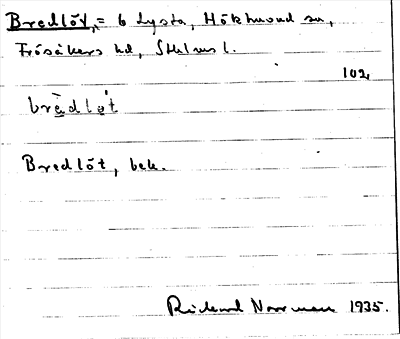 Bredlöt, = 6 Lysta, Hökhuvud sn,
Frösåkers hd, Sthlms l.
102
brèdlǝt
Bredlöt, bek.
Rickard Norrman 1935.